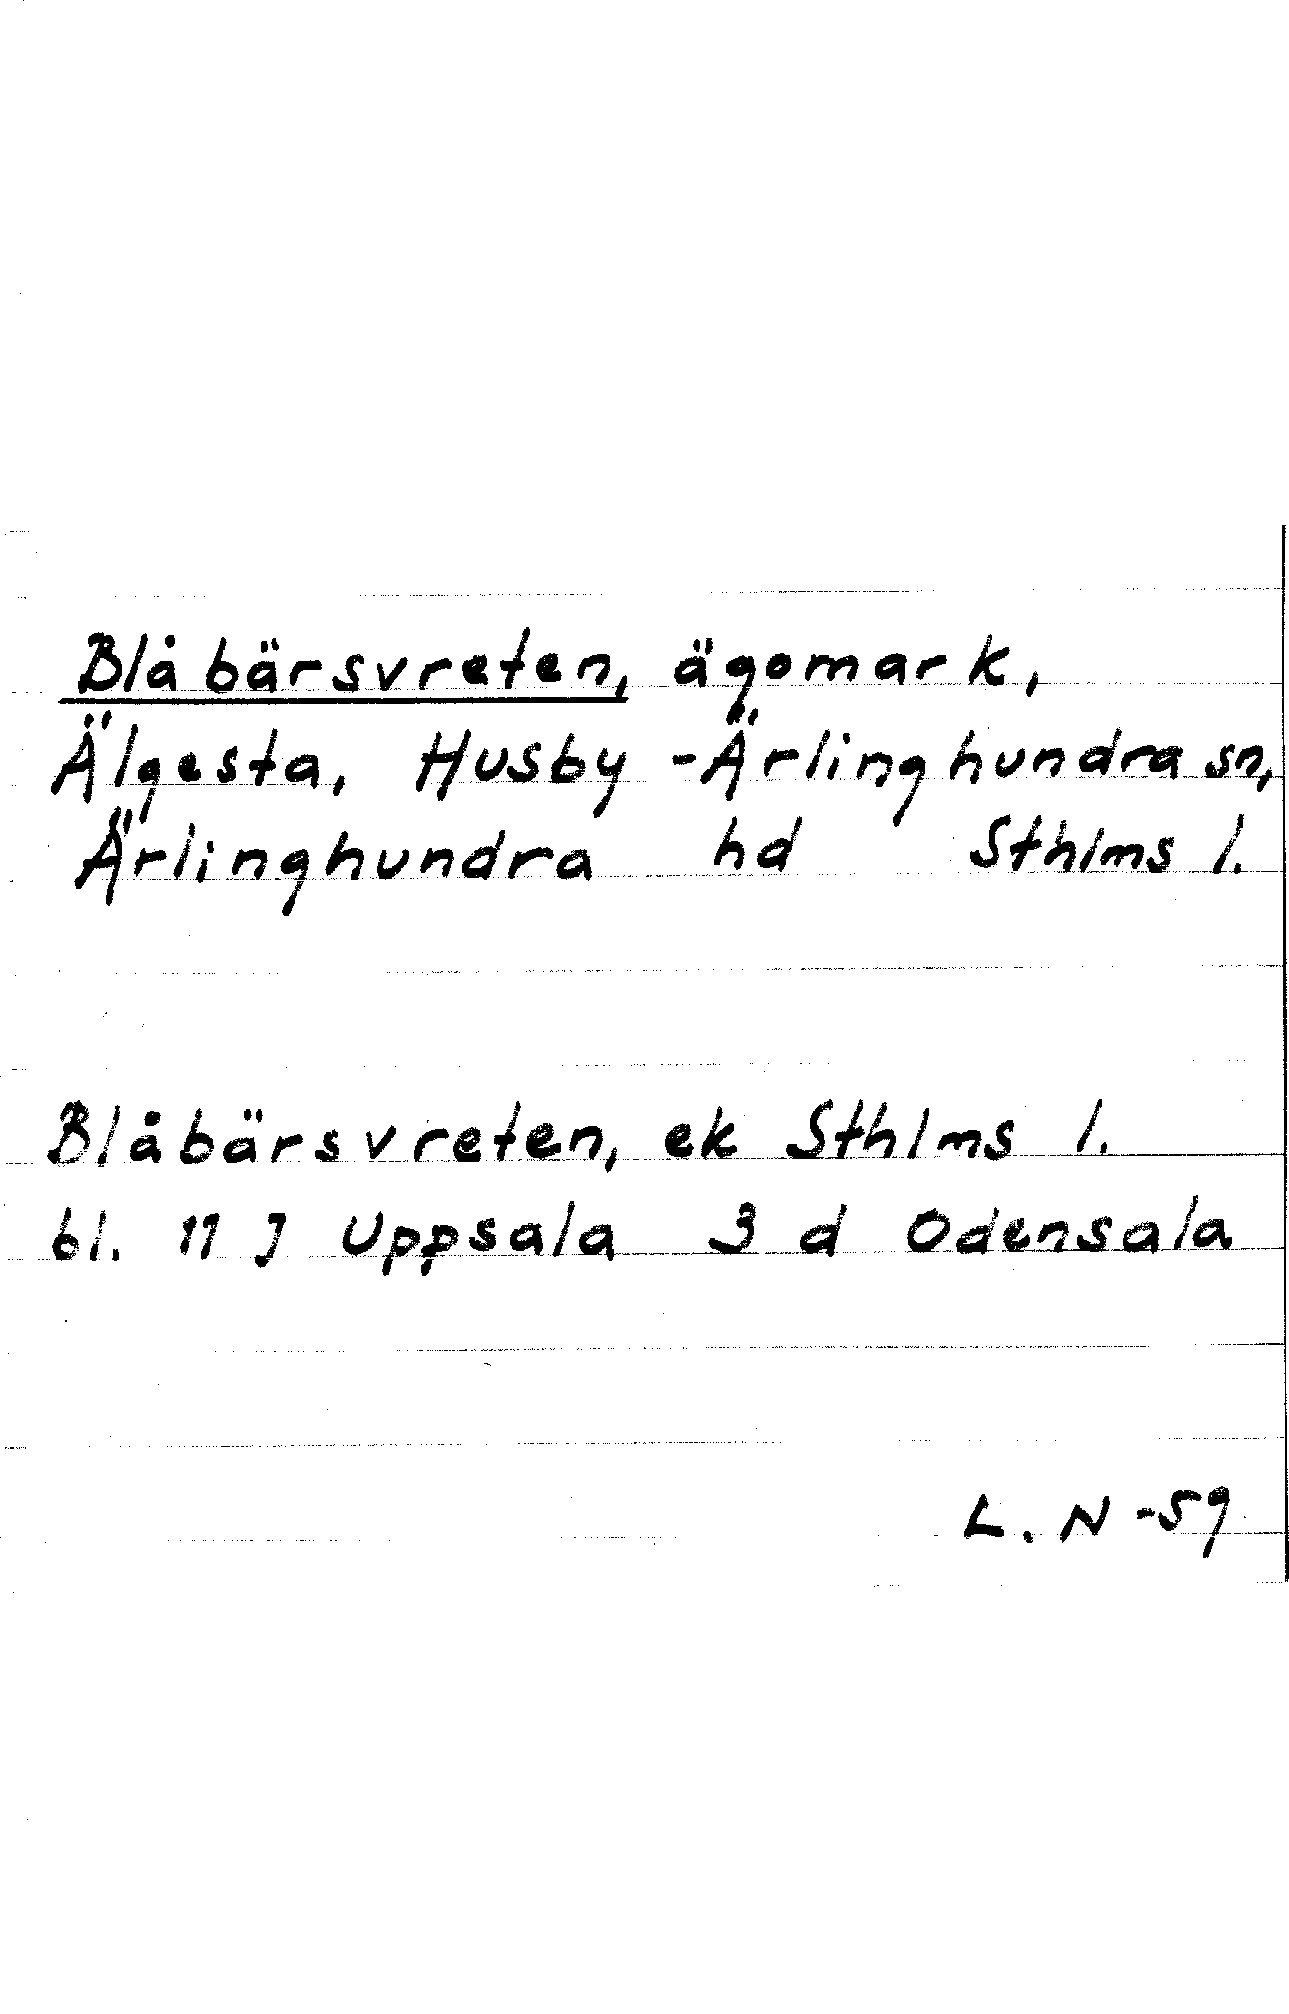 Blåbärsvreten, ägomark,
Älgesta, Husby-Ärlinghundra sn,
Ärlinghundra hd Sthlms l.
Blåbärsvreten, ek Sthlms l.
bl. 11 J Uppsala 3 d Odensala
L. N -59